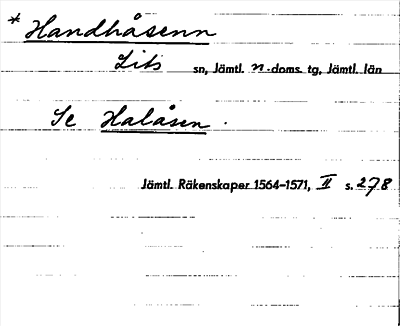 * Handhåsenn
Lits sn, Jämtl. n. doms. tg, Jämtl. län
Se Halåsen.
Jämtl. Räkenskaper 1564-1571, II s. 278